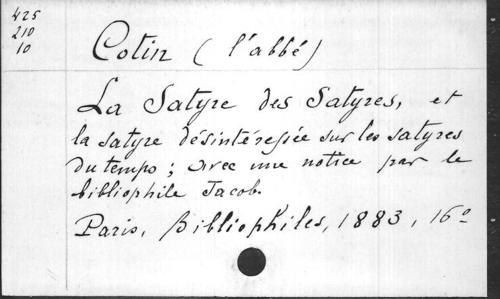 425
210
10
Cotin (l'abbé)
La Satyre des Satyres, et
la satyre désintéressée sur les satyres
du temps ; avec une notice par le
bibliophile Jacob.
Paris, Bibliophiles, 1883, 16º